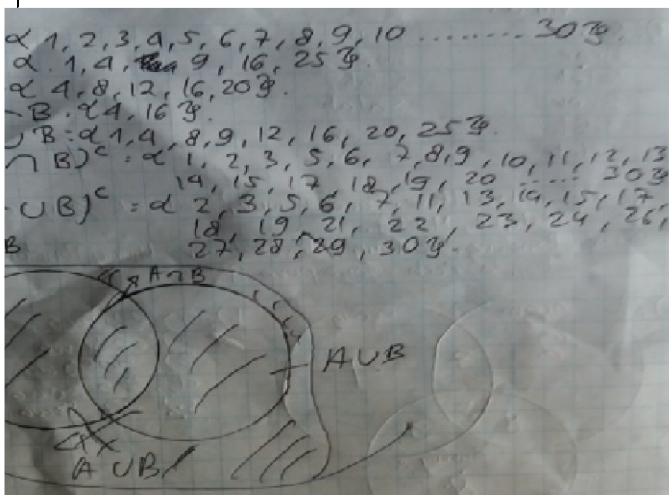 {1, 2, 3, 4, 5, 6, 7, 8, 9, 10 ........ 30}
{1, 4, 9, 16, 25}
{4, 8, 12, 16, 20}.
B: {4, 16}.
∪ B: {1, 4, 8, 9, 12, 16, 20, 25}
∩ B)ᶜ = {1, 2, 3, 5, 6, 7, 8, 9, 10, 11, 12, 13
14, 15, 17, 18, 19, 20 ..... 30}
∪ B)ᶜ = {2, 3, 5, 6, 7, 11, 13, 14, 15, 17,
18, 19, 21, 22, 23, 24, 26,
B 27, 28, 29, 30}.
A∩B
A∪B
A∪B